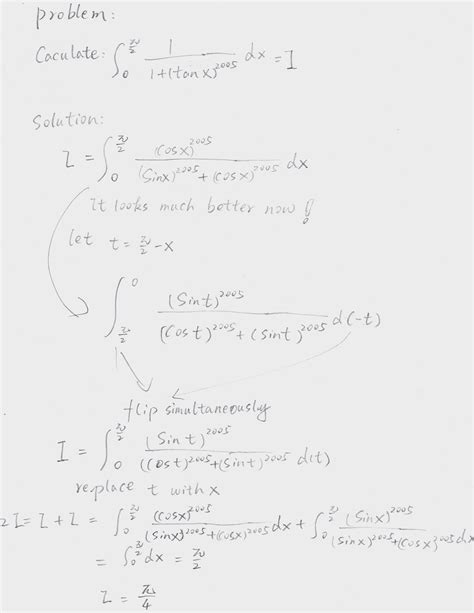 problem:
Caculate: ∫₀^{π/2} 1/(1+(tan x)^{2005}) dx = I
Solution:
I = ∫₀^{π/2} (cosx)^{2005}/((sinx)^{2005}+(cosx)^{2005}) dx
It looks much better now!
let t = π/2 - x
∫_{π/2}^{0} (Sint)^{2005}/((cost)^{2005}+(sint)^{2005}) d(-t)
flip simultaneously
I = ∫₀^{π/2} (Sint)^{2005}/((cost)^{2005}+(Sint)^{2005}) d(t)
replace t with x
2I = I + I = ∫₀^{π/2} (cosx)^{2005}/((sinx)^{2005}+(cosx)^{2005}) dx + ∫₀^{π/2} (sinx)^{2005}/((sinx)^{2005}+(cosx)^{2005}) dx
= ∫₀^{π/2} dx = π/2
I = π/4